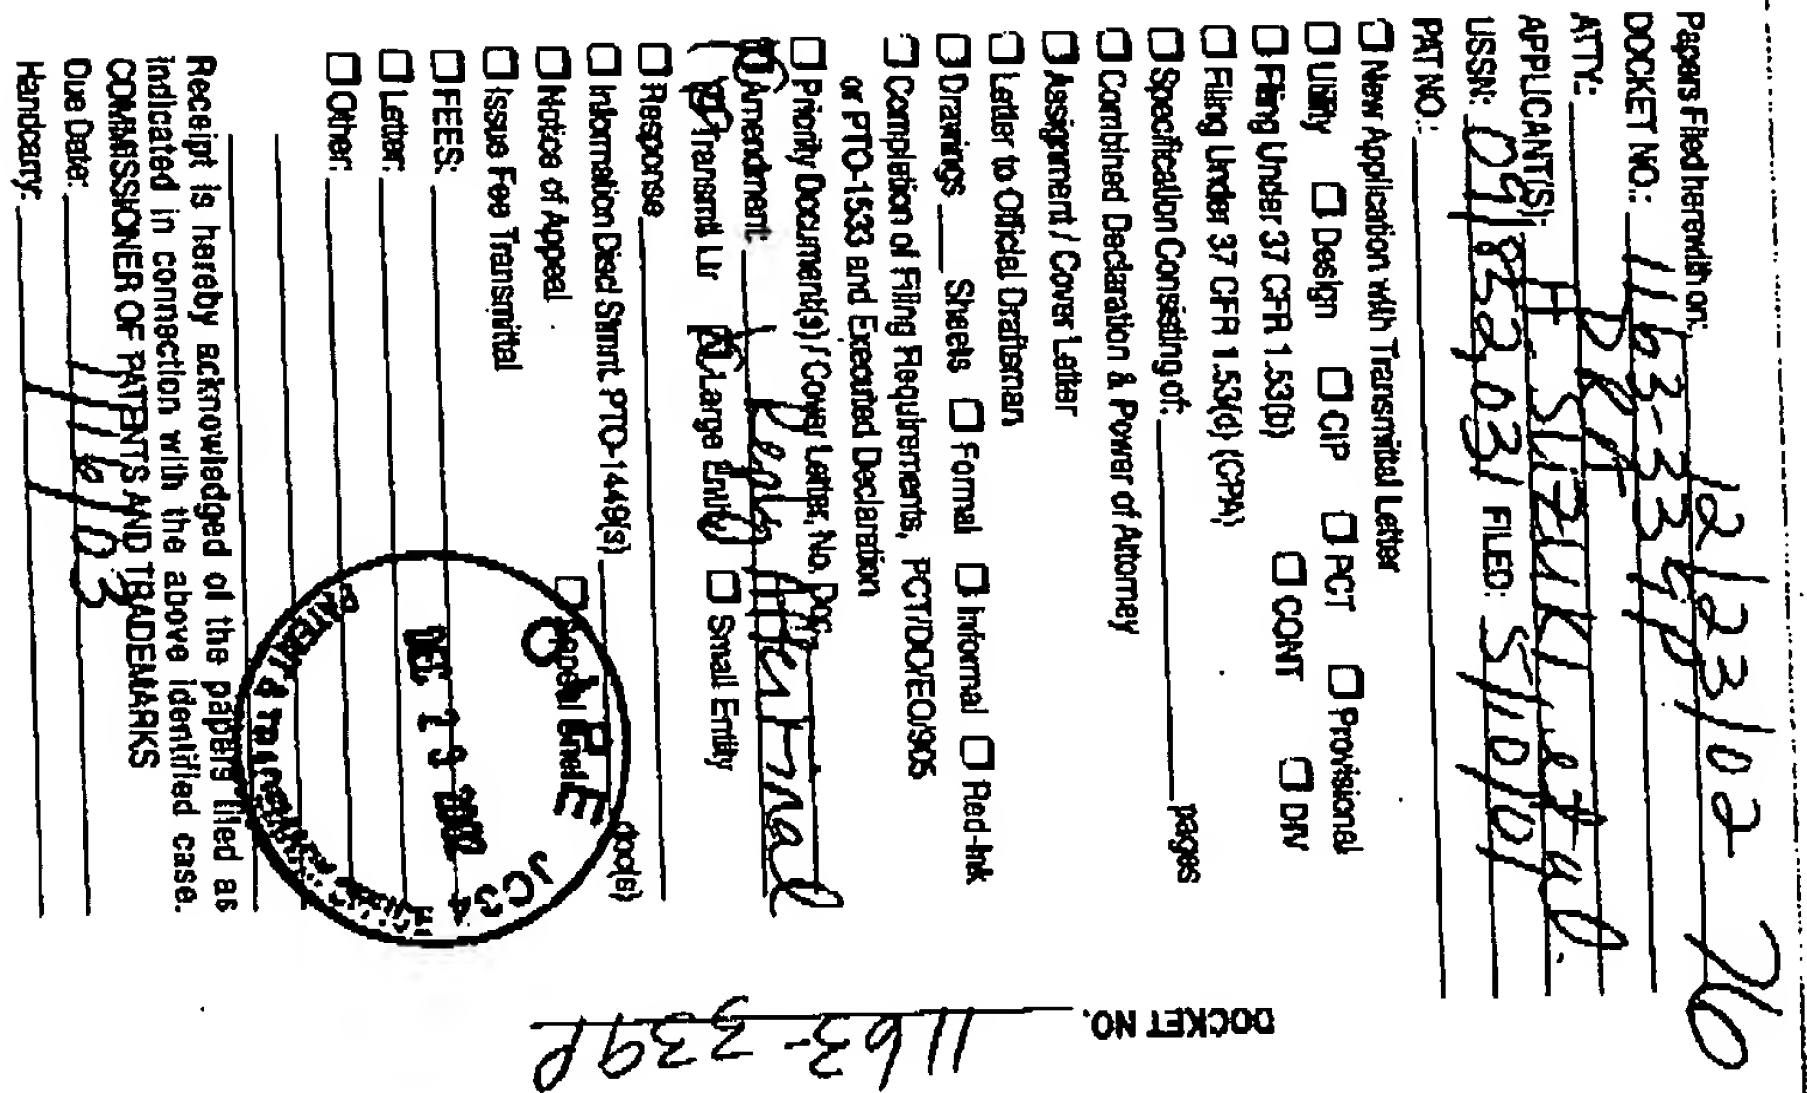 Papers Filed herewith on: 12/23/02 76
DOCKET NO.: 1163-339P
ATTY:
APPLICANT(S): T. SUZUKI et al.
USSN: 09/852,031 FILED: 5/10/01
PAT NO.:
☐ New Application with Transmittal Letter
☐ Utility ☐ Design ☐ CIP ☐ PCT ☐ Provisional
☐ Filing Under 37 CFR 1.53(b) ☐ CONT ☐ DIV
☐ Filing Under 37 CFR 1.53(d) (CPA)
☐ Specification Consisting of: pages
☐ Combined Declaration & Power of Attorney
☐ Assignment / Cover Letter
☐ Letter to Official Draftsman
☐ Drawings Sheets ☐ Formal ☐ Informal ☐ Red-Ink
☐ Completion of Filing Requirements, PCT/DO/EO/905
or PTO-1533 and Executed Declaration
☐ Priority Document(s) / Cover Letter, No. Doc.
☒ Amendment: Reply After Final
☒ Transmit Ltr ☒ Large Entity ☐ Small Entity
☐ Response
☐ Information Discl Stmnt PTO-1449(s) doc(s)
☐ Notice of Appeal ☐ Appeal Brief
☐ Issue Fee Transmittal
☐ FEES:
☐ Letter:
☐ Other:
Receipt is hereby acknowledged of the papers filed as
indicated in connection with the above identified case.
COMMISSIONER OF PATENTS AND TRADEMARKS
Due Date: 1/16/03
Handcarry:
OIPE
JC34
PATENT & TRADEMARK
DOCKET NO. 1163-339P